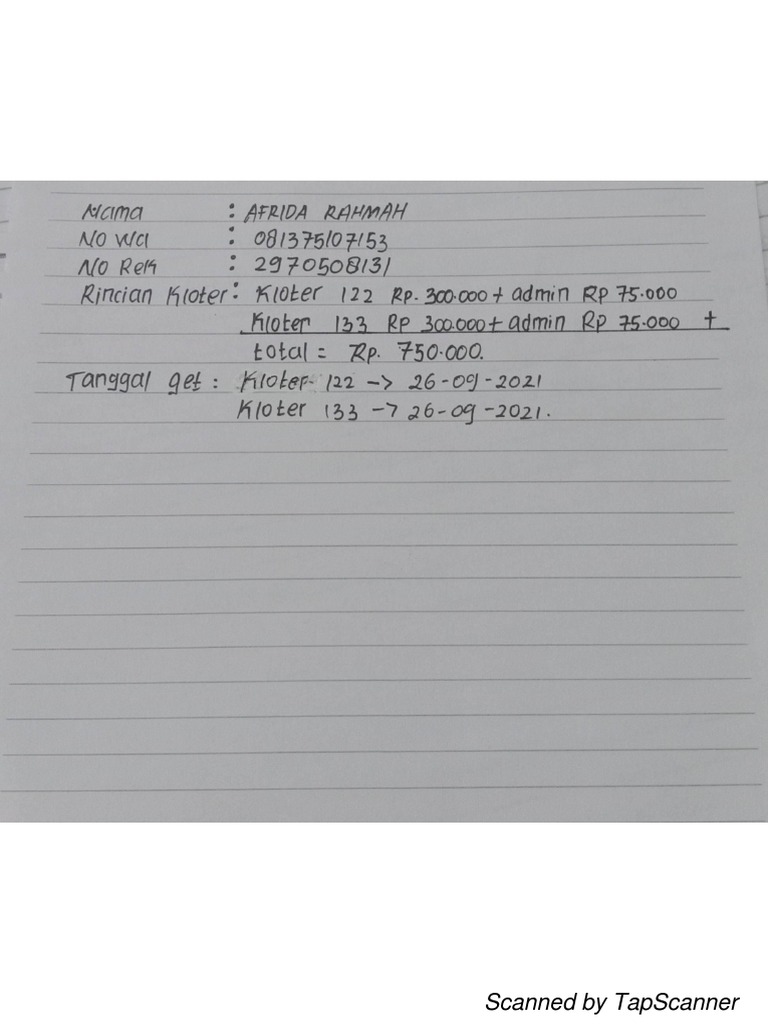 Nama : AFRIDA RAHMAH
No Wa : 081375107153
No Rek : 2970508131
Rincian Kloter : Kloter 122 Rp. 300.000 + admin Rp 75.000
Kloter 133 Rp 300.000 + admin Rp 75.000 +
total = Rp. 750.000.
Tanggal get : Kloter 122 -> 26-09-2021
Kloter 133 -> 26-09-2021.
Scanned by TapScanner